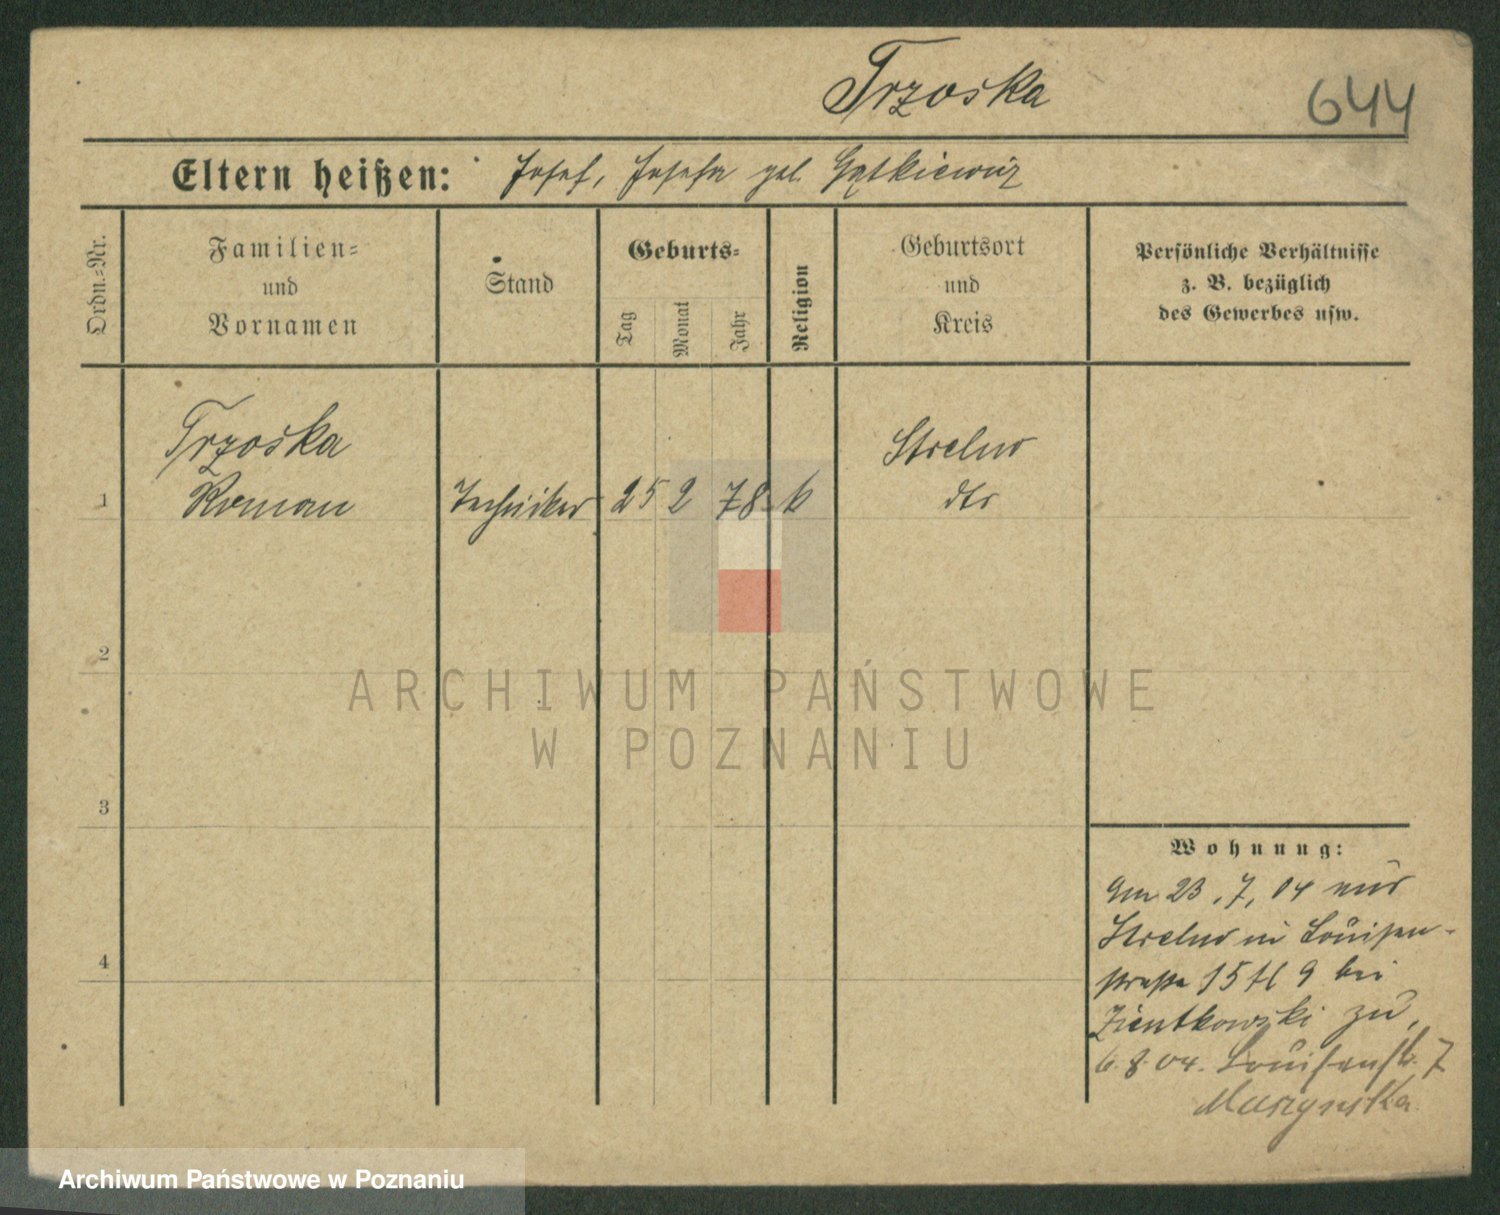 Trzoska
644
Eltern heißen: Josef, Josefa geb. Gątkiewicz
Ordn.-Nr.
Familien-
und
Vornamen
Stand
Geburts-
Tag
Monat
Jahr
Religion
Geburtsort
und
Kreis
Persönliche Verhältnisse
z. B. bezüglich
des Gewerbes usw.
Trzoska
1 Roman Techniker 25 2 78 k
Strelno
dto
2
3
4
Wohnung:
Am 23.7.04 aus
Strelno in Louisen-
straße 15 H 9 bei
Zientkowski zu,
6.8.04. Louisenstr. 7
ARCHIWUM PAŃSTWOWE
W POZNANIU
Archiwum Państwowe w Poznaniu